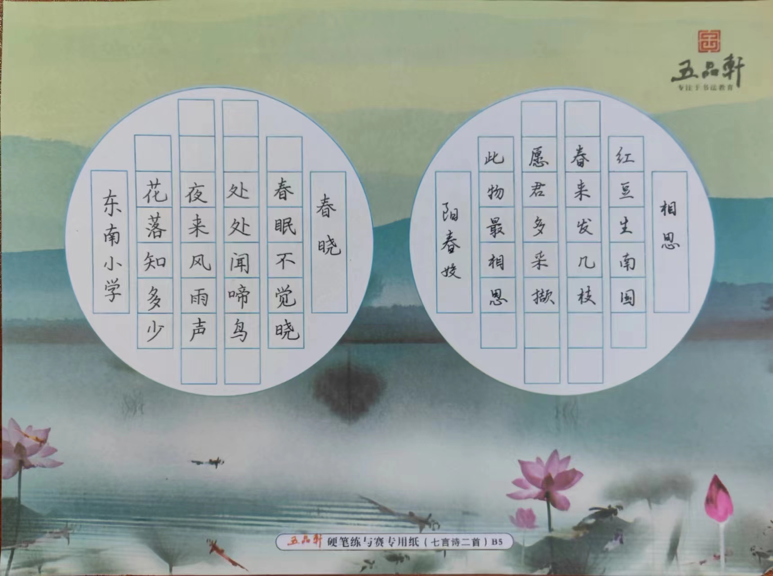 五品軒
相思
红豆生南国
春来发几枝
愿君多采撷
此物最相思
阳春姣
春晓
春眠不觉晓
处处闻啼鸟
夜来风雨声
花落知多少
东南小学
五品軒 硬笔练与赛专用纸（七言诗二首）B5